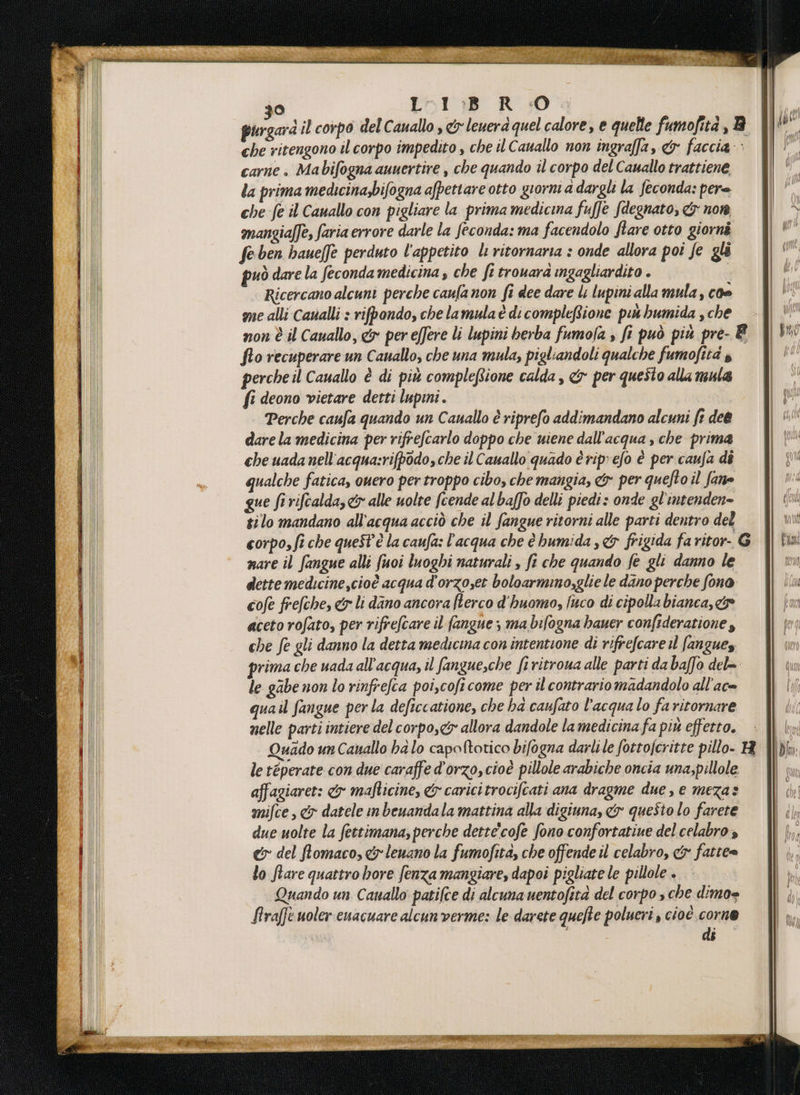 30 LIBRO
purgarà il corpo del Cauallo, & leuerà quel calore, e quelle fumosità, B
che ritengono il corpo impedito, che il Cauallo non ingrassa, & faccia
carne. Ma bisogna auuertire, che quando il corpo del Cauallo trattiene
la prima medicina, bisogna aspettare otto giorni à dargli la seconda: pere
che se il Cauallo con pigliare la prima medicina fusse sdegnato, & non
mangiasse, faria errore darle la seconda: ma facendolo stare otto giorni
se ben hauesse perduto l'appetito li ritornaria: onde allora poi se gli
può dare la seconda medicina, che si trouarà ingagliardito.
Ricercano alcuni perche causa non si dee dare li lupini alla mula, coe
me alli Caualli: rispondo, che la mula è di complessione più humida, che
non è il Cauallo, & per essere li lupini herba fumosa, si può più pre- F
sto recuperare un Cauallo, che una mula, pigliandoli qualche fumosità,
perche il Cauallo è di più complessione calda, & per questo alla mula
si deono vietare detti lupini.
Perche causa quando un Cauallo è ripreso addimandano alcuni si dee
dare la medicina per rifrescarlo doppo che uiene dall'acqua, che prima
che uada nell'acqua: rispōdo, che il Cauallo quādo è ripreso è per causa di
qualche fatica, ouero per troppo cibo, che mangia, & per questo il sane
gue si riscalda, & alle uolte scende al basso delli piedi: onde gl'intendene
ti lo mandano all'acqua acciò che il sangue ritorni alle parti dentro del
corpo, si che quest'è la causa: l'acqua che è humida, & frigida fa ritor- G
nare il sangue alli suoi luoghi naturali, si che quando se gli danno le
dette medicine, cioè acqua d'orzo, et boloarmino, glie le dāno perche sono
cose fresche, & li dāno ancora sterco d'huomo, suco di cipolla bianca, &
aceto rosato, per rifrescare il sangue; ma bisogna hauer consideratione,
che se gli danno la detta medicina con intentione di rifrescare il sangue,
prima che uada all'acqua, il sangue, che si ritroua alle parti da basso dele
le gābe non lo rinfresca poi, cosi come per il contrario mādandolo all'ace
qua il sangue per la desiccatione, che hà causato l'acqua lo fa ritornare
nelle parti intiere del corpo, & allora dandole la medicina fa più effetto.
Quādo un Cauallo hà lo capostotico bisogna darli le sottoscritte pillo- H
le tēperate con due caraffe d'orzo, cioè pillole arabiche oncia una, pillole
affagiaret: & masticine, & carici trociscati ana dragme due, e meza:
misce, & datele in beuanda la mattina alla digiuna, & questo lo farete
due uolte la settimana, perche dette cose sono confortatiue del celabro,
& del stomaco, & leuano la fumosità, che offende il celabro, & fattee
lo stare quattro hore senza mangiare, dapoi pigliate le pillole.
Quando un Cauallo patisce di alcuna uentosità del corpo, che dimoe
strasse uoler euacuare alcun verme: le darete queste polueri, cioè corno
di